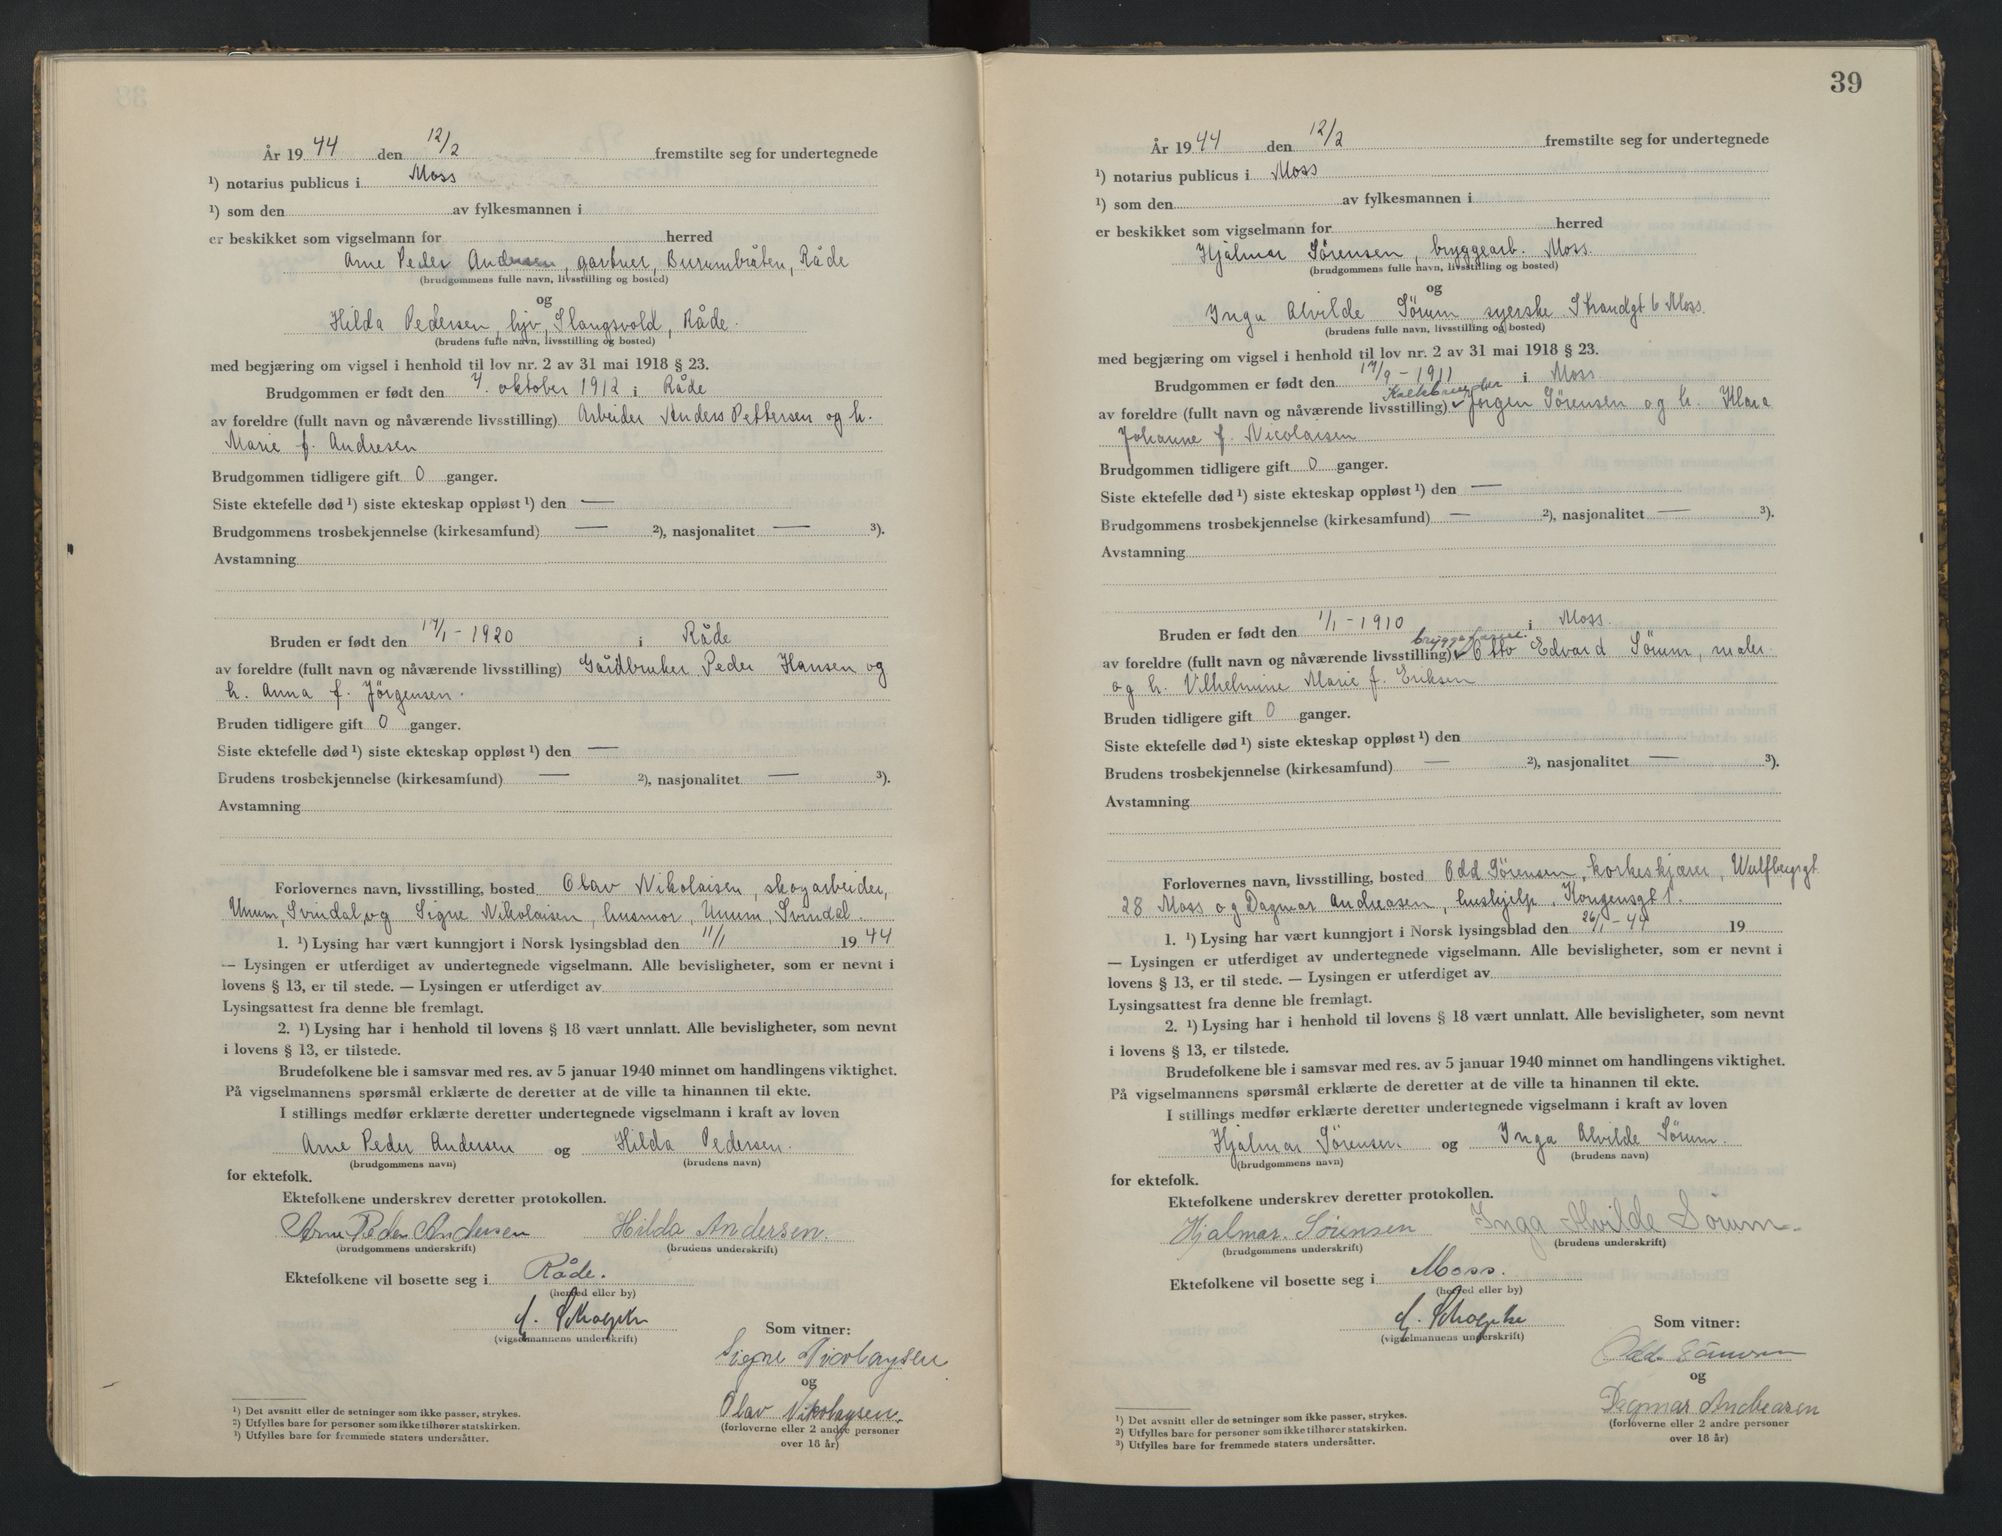 År 1944 den 12/2 fremstilte seg for undertegnede
¹) notarius publicus i Moss
¹) som den av fylkesmannen i
er beskikket som vigselmann for herred
Arne Peder Andersen, gartner, Burumbråten, Råde
(brudgommens fulle navn, livsstilling og bosted)
og
Hilda Pedersen, hjv, Slangsvold, Råde.
(brudens fulle navn, livsstilling og bosted)
med begjæring om vigsel i henhold til lov nr. 2 av 31 mai 1918 § 23.
Brudgommen er født den 7. oktober 1912 i Råde
av foreldre (fullt navn og nåværende livsstilling) Arbeider Anders Pettersen og h.
Marie f. Andresen
Brudgommen tidligere gift 0 ganger.
Siste ektefelle død ¹) siste ekteskap oppløst ¹) den —
Brudgommens trosbekjennelse (kirkesamfund) — ²), nasjonalitet — ³).
Avstamning
Bruden er født den 17/1 - 1920 i Råde
av foreldre (fullt navn og nåværende livsstilling) Gårdbruker Peder Hansen og
h. Anna f. Jørgensen.
Bruden tidligere gift 0 ganger.
Siste ektefelle død ¹) siste ekteskap oppløst ¹) den —
Brudens trosbekjennelse (kirkesamfund) — ²), nasjonalitet — ³).
Avstamning
Forlovernes navn, livsstilling, bosted Olav Nikolaisen, skogarbeider,
Unum, Svindal og Signe Nikolaisen, husmor, Unum, Svindal.
1. ¹) Lysing har vært kunngjort i Norsk lysingsblad den 11/1 1944
— Lysingen er utferdiget av undertegnede vigselmann. Alle bevisligheter, som er nevnt i
lovens § 13, er til stede. — Lysingen er utferdiget av
Lysingsattest fra denne ble fremlagt.
2. ¹) Lysing har i henhold til lovens § 18 vært unnlatt. Alle bevisligheter, som nevnt
i lovens § 13, er tilstede.
Brudefolkene ble i samsvar med res. av 5 januar 1940 minnet om handlingens viktighet.
På vigselmannens spørsmål erklærte de deretter at de ville ta hinannen til ekte.
I stillings medfør erklærte deretter undertegnede vigselmann i kraft av loven
Arne Peder Andersen og Hilda Pedersen.
(brudgommens navn) (brudens navn)
for ektefolk.
Ektefolkene underskrev deretter protokollen.
Arne Peder Andersen Hilda Andersen.
(brudgommens underskrift) (brudens underskrift)
Ektefolkene vil bosette seg i Råde.
(herred eller by)
(vigselmannens underskrift)
Som vitner:
Signe Nicolaysen
og
Olav Nikolaysen.
(forloverne eller 2 andre personer
over 18 år)
¹) Det avsnitt eller de setninger som ikke passer, strykes.
²) Utfylles bare for personer som ikke tilhører statskirken.
³) Utfylles bare for fremmede staters undersåtter.
39
År 1944 den 12/2 fremstilte seg for undertegnede
¹) notarius publicus i Moss
¹) som den av fylkesmannen i
er beskikket som vigselmann for herred
Hjalmar Sørensen, bryggearb. Moss.
(brudgommens fulle navn, livsstilling og bosted)
og
Inga Alvilde Sørum syerske Strandgt 6 Moss.
(brudens fulle navn, livsstilling og bosted)
med begjæring om vigsel i henhold til lov nr. 2 av 31 mai 1918 § 23.
Brudgommen er født den 17/9 - 1911 i Moss.
av foreldre (fullt navn og nåværende livsstilling) Jørgen Sørensen og h. Klara
Johanne f. Nicolaisen
Brudgommen tidligere gift 0 ganger.
Siste ektefelle død ¹) siste ekteskap oppløst ¹) den —
Brudgommens trosbekjennelse (kirkesamfund) — ²), nasjonalitet — ³).
Avstamning
Bruden er født den 1/1 - 1910 i Moss.
av foreldre (fullt navn og nåværende livsstilling) Otto Edvard Sørum, maler
og h. Vilhelmine Marie f. Eriksen
Bruden tidligere gift 0 ganger.
Siste ektefelle død ¹) siste ekteskap oppløst ¹) den
Brudens trosbekjennelse (kirkesamfund) — ²), nasjonalitet — ³).
Avstamning
Forlovernes navn, livsstilling, bosted Odd Sørensen, korkeskjærer, Wulfbergsgt
28 Moss og Dagmar Andreasen, hushjelp, Kongensgt 1.
1. ¹) Lysing har vært kunngjort i Norsk lysingsblad den 26/1 - 44 19
— Lysingen er utferdiget av undertegnede vigselmann. Alle bevisligheter, som er nevnt i
lovens § 13, er til stede. — Lysingen er utferdiget av
Lysingsattest fra denne ble fremlagt.
2. ¹) Lysing har i henhold til lovens § 18 vært unnlatt. Alle bevisligheter, som nevnt
i lovens § 13, er tilstede.
Brudefolkene ble i samsvar med res. av 5 januar 1940 minnet om handlingens viktighet.
På vigselmannens spørsmål erklærte de deretter at de ville ta hinannen til ekte.
I stillings medfør erklærte deretter undertegnede vigselmann i kraft av loven
Hjalmar Sørensen. og Inga Alvilde Sørum.
(brudgommens navn) (brudens navn)
for ektefolk.
Ektefolkene underskrev deretter protokollen.
Hjalmar. Sørensen Inga Alvilde Sørum.
(brudgommens underskrift) (brudens underskrift)
Ektefolkene vil bosette seg i Moss.
(herred eller by)
(vigselmannens underskrift)
Som vitner:
Odd Sørensen
og
Dagmar Andreasen
(forloverne eller 2 andre personer
over 18 år)
¹) Det avsnitt eller de setninger som ikke passer, strykes.
²) Utfylles bare for personer som ikke tilhører statskirken.
³) Utfylles bare for fremmede staters undersåtter.